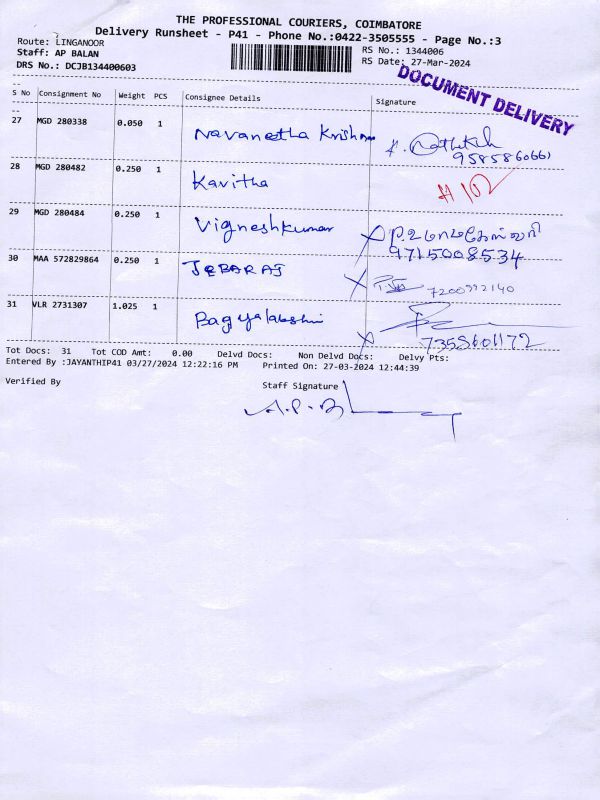 THE PROFESSIONAL COURIERS, COIMBATORE
Delivery Runsheet - P41 - Phone No.:0422-3505555 - Page No.:3
Route: LINGANOOR
RS No.: 1344006
Staff: AP BALAN
RS Date: 27-Mar-2024
DRS No.: DCJB134400603
DOCUMENT DELIVERY
S No Consignment No Weight PCS Consignee Details Signature
27 MGD 280338 0.050 1 Navaneetha Krishnan
9585860661
28 MGD 280482 0.250 1 Kavitha
# 102
29 MGD 280484 0.250 1 Vigneshkumar
9715008534
30 MAA 572829864 0.250 1 JEBARAJ
7200992140
31 VLR 2731307 1.025 1 Bagyalakshmi
7358601172
Tot Docs: 31 Tot COD Amt: 0.00 Delvd Docs: Non Delvd Docs: Delvy Pts:
Entered By :JAYANTHIP41 03/27/2024 12:22:16 PM Printed On: 27-03-2024 12:44:39
Verified By Staff Signature